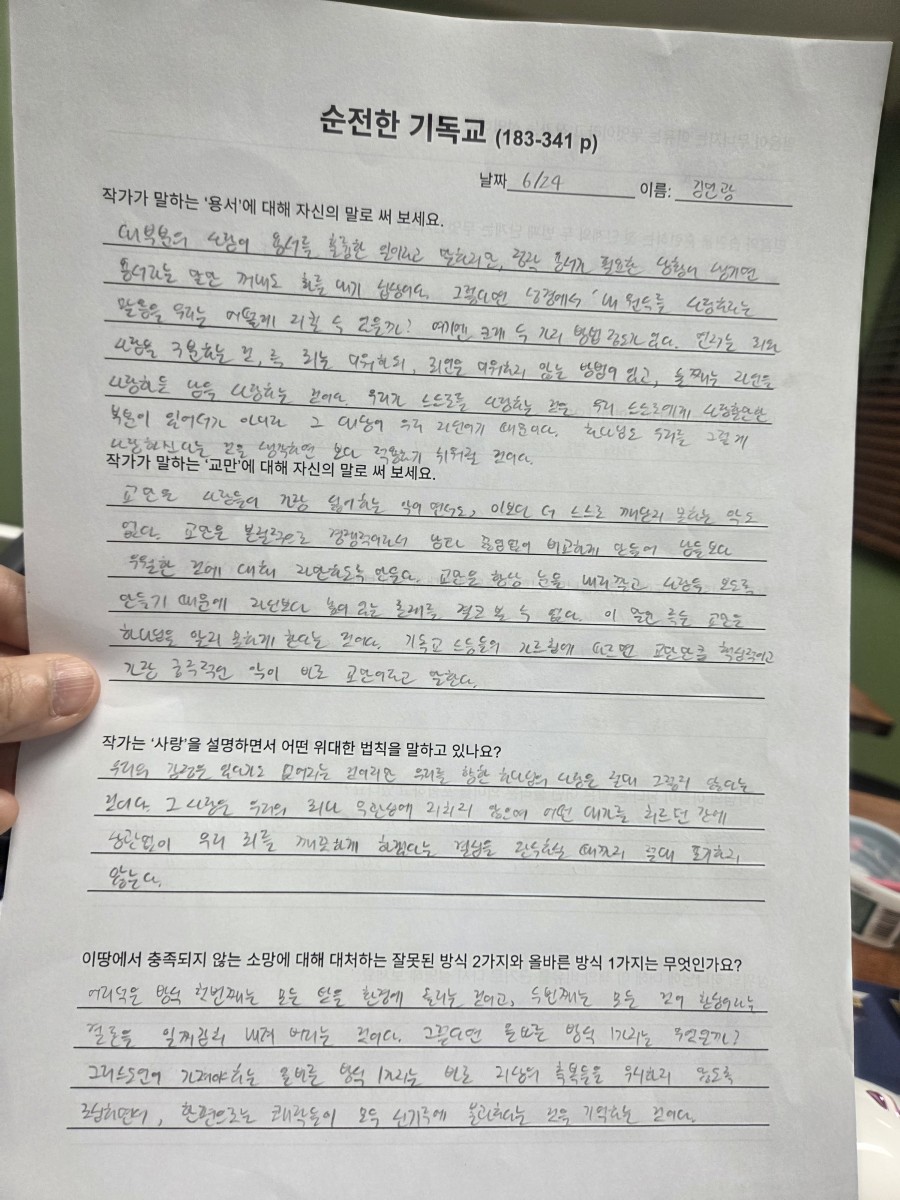 순전한 기독교 (183-341 p)
날짜 6/24 이름: 김민광
작가가 말하는 '용서'에 대해 자신의 말로 써 보세요.
대부분의 사람이 용서를 훌륭한 일이라고 말하지만, 정작 용서가 필요한 상황이 생기면
용서라는 말만 꺼내도 화를 내기 십상이다. 그렇다면 성경에서 '네 원수를 사랑하라는
말씀을 우리는 어떻게 지킬 수 있을까? 여기엔 크게 두 가지 방법 정도가 있다. 먼저는 죄와
사람을 구분하는 것, 즉 죄는 미워하되, 죄인은 미워하지 않는 방법이 있고, 둘째는 자신을
사랑하듯 남을 사랑하는 것이다. 우리가 스스로를 사랑하는 것은 우리 스스로에게 사랑할만한
부분이 있어서가 아니라 그 대상이 우리 자신이기 때문이다. 하나님도 우리를 그렇게
사랑하신다는 것을 생각하면 보다 적용하기 쉬워질 것이다.
작가가 말하는 '교만'에 대해 자신의 말로 써 보세요.
교만은 사람들이 가장 싫어하는 악이면서도, 이보다 더 스스로 깨닫지 못하는 악도
없다. 교만은 본질적으로 경쟁적이라서 남과 끊임없이 비교하게 만들어 남들보다
우월한 것에 대해 자만하도록 만들다. 교만은 항상 눈을 내리깔고 사람을 보도록
만들기 때문에 자신보다 높이 있는 존재를 결코 볼 수 없다. 이 말은 곧 교만은
하나님을 알지 못하게 한다는 것이다. 기독교 스승들의 가르침에 따르면 교만만큼 핵심적이고
가장 궁극적인 악이 바로 교만이라고 말한다.
작가는 '사랑'을 설명하면서 어떤 위대한 법칙을 말하고 있나요?
우리의 감정은 있다가도 없어지는 것이지만 우리를 향한 하나님의 사랑은 절대 그렇지 않다는
것이다. 그 사랑은 우리의 죄나 무관심에 지치지 않으며 어떤 대가를 치르던 간에
상관없이 우리 죄를 깨끗하게 하겠다는 결심을 완수하실 때까지 절대 포기하지
않는다.
이땅에서 충족되지 않는 소망에 대해 대처하는 잘못된 방식 2가지와 올바른 방식 1가지는 무엇인가요?
어리석은 방식 첫번째는 모든 탓을 환경에 돌리는 것이고, 두번째는 모든 것이 환상이라는
결론을 일찌감치 내려 버리는 것이다. 그렇다면 올바른 방식 1가지는 무엇일까?
그리스도인이 가져야하는 올바른 방식 1가지는 바로 지상의 축복들을 무시하지 않도록
조심하면서, 한편으로는 쾌락들이 모두 신기루에 불과하다는 것을 기억하는 것이다.